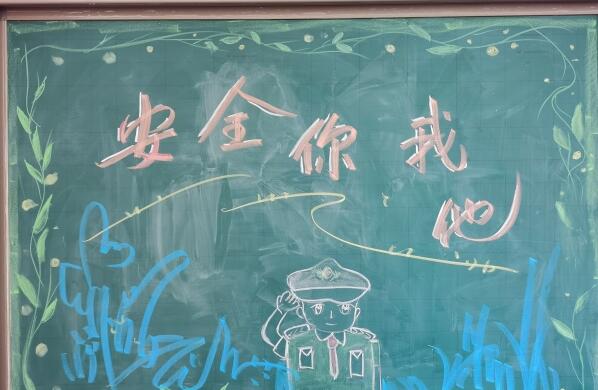 安全你我他